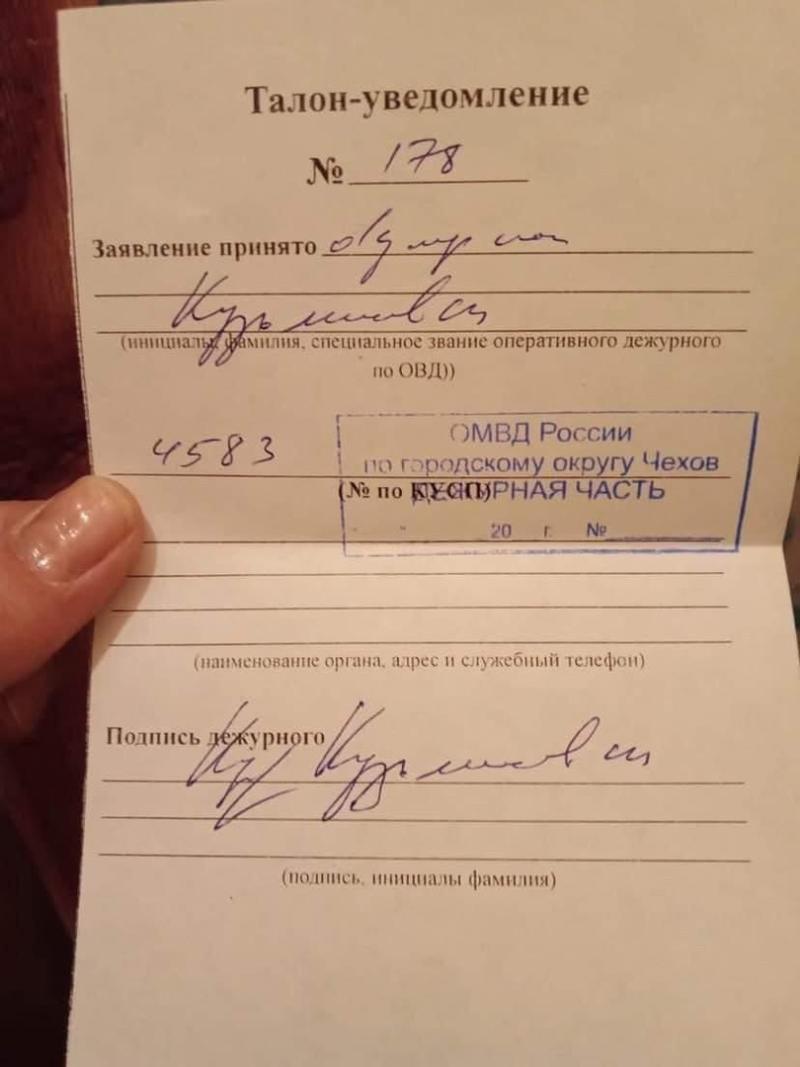 Талон-уведомление
№ 178
Заявление принято
(инициалы, фамилия, специальное звание оперативного дежурного
по ОВД))
4583
ОМВД России
по городскому округу Чехов
(№ по КУСП)
ДЕЖУРНАЯ ЧАСТЬ
" " 20 г. №
(наименование органа, адрес и служебный телефон)
Подпись дежурного
(подпись, инициалы фамилия)